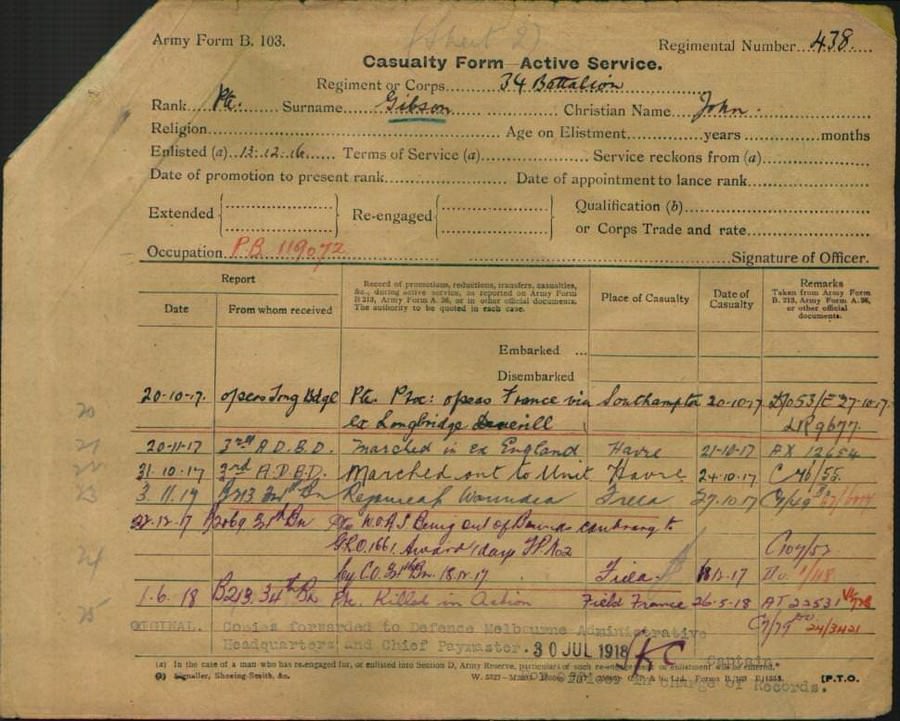 (Sheet 2)
Army Form B. 103.
Regimental Number...438.
Casualty Form—Active Service.
Regiment or Corps 34 Battalion
Rank Pte. Surname Gibson Christian Name John.
Religion Age on Elistment years months
Enlisted (a) 13.12.16 Terms of Service (a) Service reckons from (a)
Date of promotion to present rank Date of appointment to lance rank
Extended Re-engaged Qualification (b)
or Corps Trade and rate
Occupation P.B. 119072 Signature of Officer.
Report
Date From whom received
Record of promotions, reductions, transfers, casualties,
&c., during active service, as reported on Army Form
B 213, Army Form A. 36, or in other official documents.
The authority to be quoted in each case.
Place of Casualty
Date of
Casualty
Remarks
Taken from Army Form
B. 213, Army Form A. 36,
or other official
documents.
Embarked ...
Disembarked
20 20-10-17. Pte. Proc: o/seas France via Southampton 20-10-17 27-10-17
ex Longbridge Deverill
21 20-11-17 3rd A.D.B.D. Marched in ex England Havre 21-10-17 AX 12654
22 31.10.17 3rd A.D.B.D. Marched out to Unit Havre 24-10-17
23 3.11.17 B213 34th Bn Wounded Field 27.10.17
Being out of Bounds
24 G.R.O. 1661. Award 7 days FP No2 C107/53
by C.O. 34th Bn. 18.12.17 Field
25 1.6.18 B213. 34th Bn Pte. Killed in Action Field France 26-5-18 AT 22531
24/3421
ORIGINAL. Copies forwarded to Defence Melbourne Administrative
Headquarters and Chief Paymaster. 30 JUL 1918 KC Captain.
Officer in Charge of Records.
(a) In the case of a man who has re-engaged for, or enlisted into Section D, Army Reserve, particulars of such re-engagement or enlistment will be entered.
(b) Signaller, Shoeing-Smith, &c. [P.T.O.